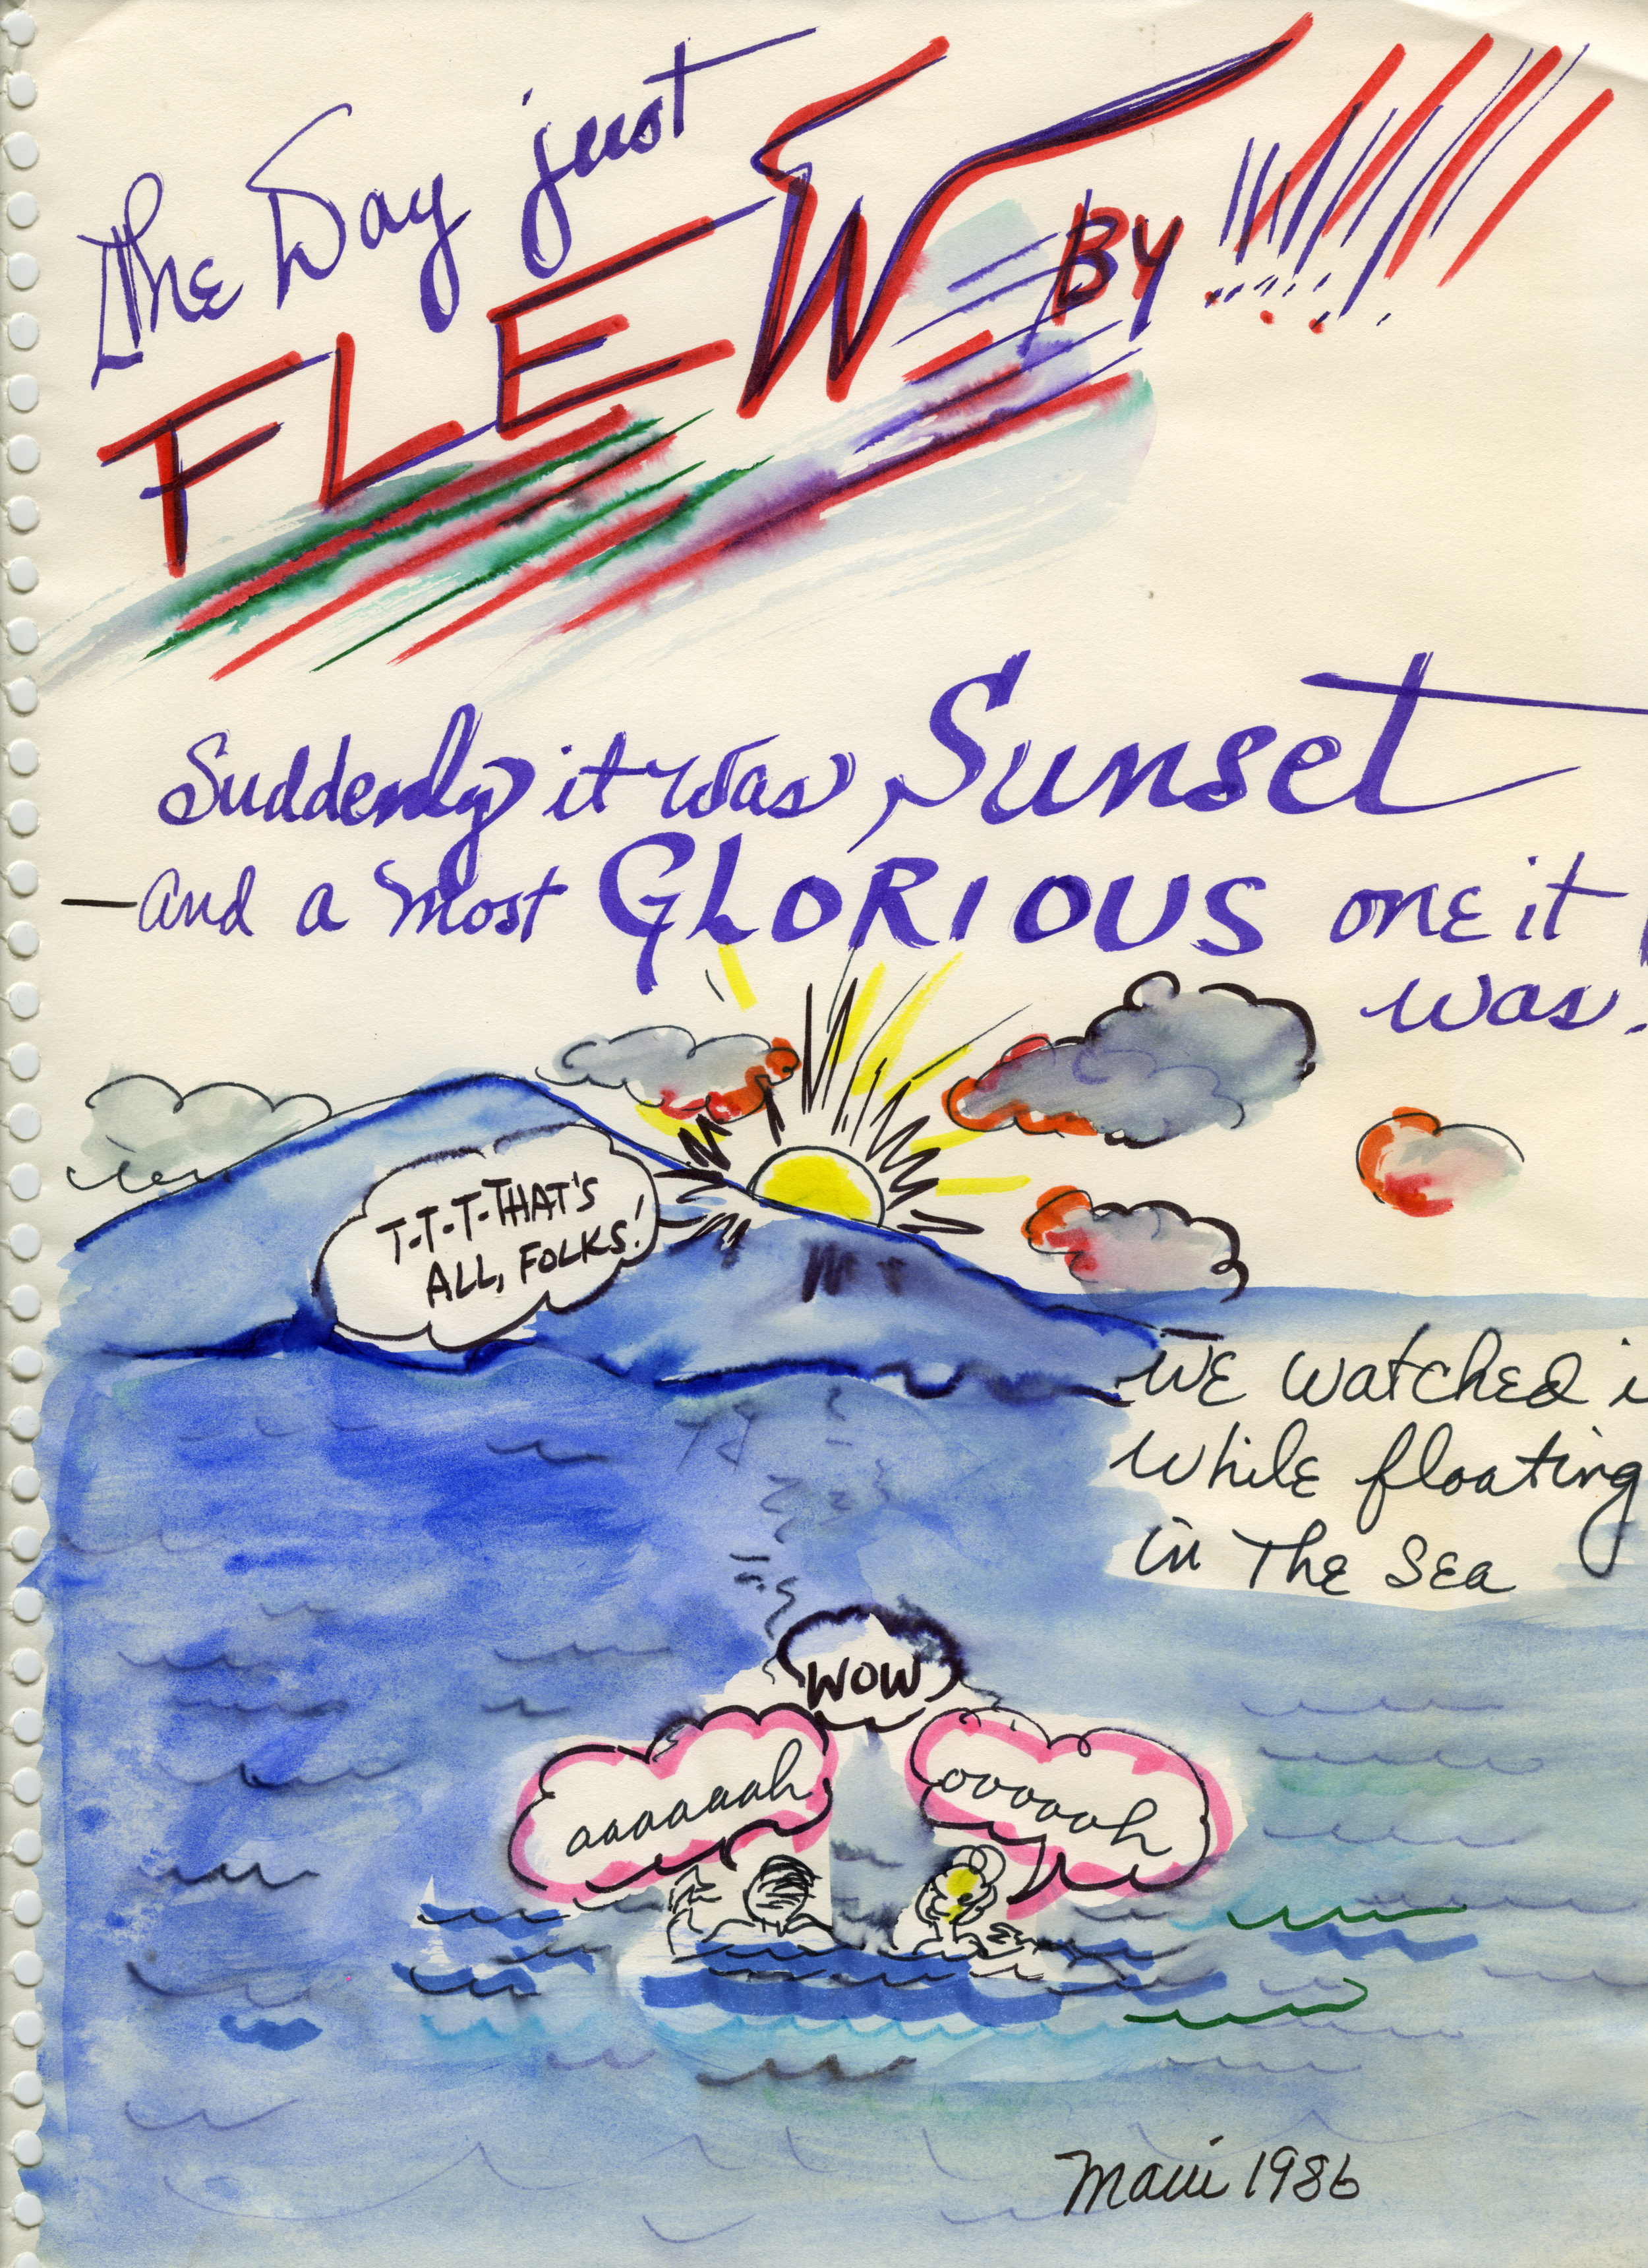 The Day just
FLEW BY !!!!!!!
Suddenly it was Sunset
— and a most GLORIOUS one it
was.
T-T-T-THAT'S
ALL, FOLKS!
WE WATCHED i
WHILE floating
in THE SEA
WOW
aaaaaah
oooooh
Maui 1986